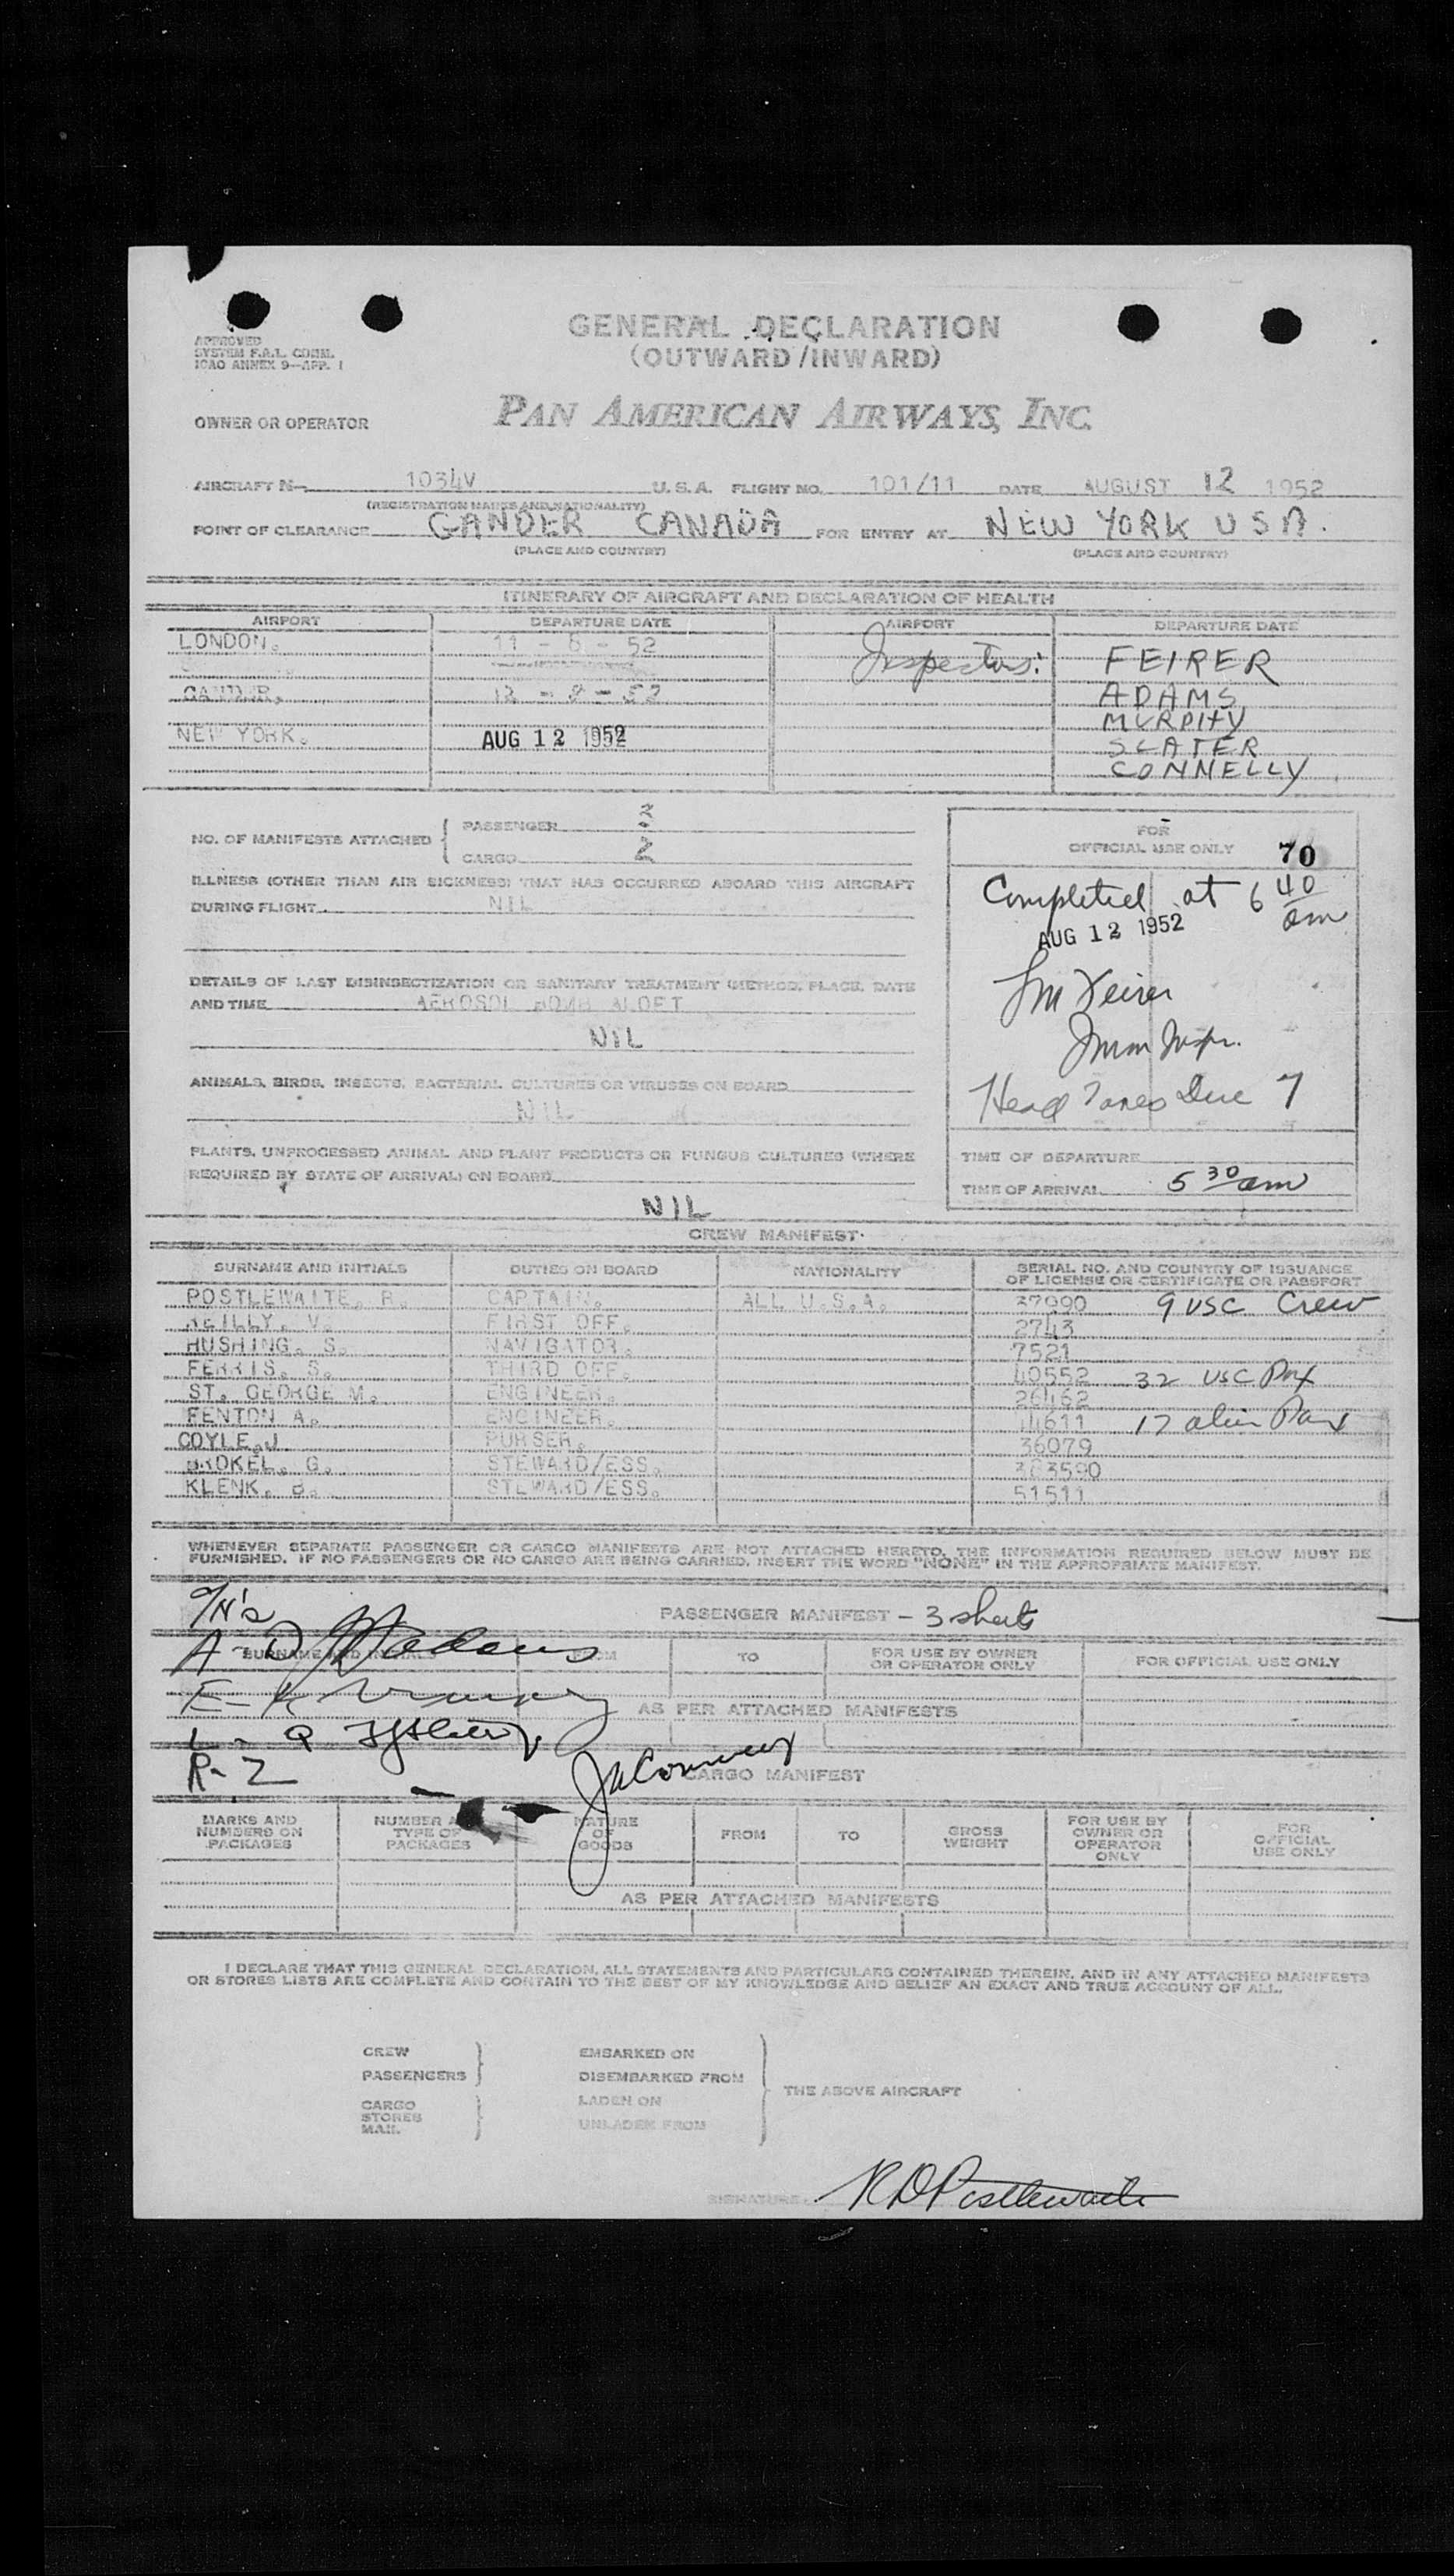 GENERAL DECLARATION
(OUTWARD/INWARD)
APPROVED
SYSTEM F.A.L. COMM.
ICAO ANNEX 9—APP. 1
OWNER OR OPERATOR PAN AMERICAN AIRWAYS, INC.
AIRCRAFT N— 1034V U.S.A. FLIGHT NO. 101/11 DATE AUGUST 12 1952
(REGISTRATION MARKS AND NATIONALITY)
POINT OF CLEARANCE GANDER CANADA FOR ENTRY AT NEW YORK USA.
(PLACE AND COUNTRY) (PLACE AND COUNTRY)
ITINERARY OF AIRCRAFT AND DECLARATION OF HEALTH
AIRPORT DEPARTURE DATE AIRPORT DEPARTURE DATE
LONDON. 11 - 8 - 52 Inspectors: FEIRER
GANDER. 12 - 8 - 52 ADAMS
MURPHY
NEW YORK. AUG 12 1952 SLATER
CONNELLY
NO. OF MANIFESTS ATTACHED
PASSENGER 3
CARGO 2
ILLNESS (OTHER THAN AIR SICKNESS) THAT HAS OCCURRED ABOARD THIS AIRCRAFT
DURING FLIGHT. NIL
DETAILS OF LAST DISINSECTIZATION OR SANITARY TREATMENT (METHOD, PLACE, DATE
AND TIME AEROSOL BOMB ALOFT
NIL
ANIMALS, BIRDS, INSECTS, BACTERIAL CULTURES OR VIRUSES ON BOARD
NIL
PLANTS, UNPROCESSED ANIMAL AND PLANT PRODUCTS OR FUNGUS CULTURES (WHERE
REQUIRED BY STATE OF ARRIVAL) ON BOARD
NIL
FOR
OFFICIAL USE ONLY 70
Completed at 6 40 am
AUG 12 1952
Feirer
Imm Inspr.
Head Taxes Due 7
TIME OF DEPARTURE
TIME OF ARRIVAL 5 30 am
CREW MANIFEST
SURNAME AND INITIALS DUTIES ON BOARD NATIONALITY SERIAL NO. AND COUNTRY OF ISSUANCE
OF LICENSE OR CERTIFICATE OR PASSPORT
POSTLEWAITE. R. CAPTAIN. ALL U.S.A. 37990 9 USC Crew
REILLY. V. FIRST OFF. 2743
HUSHING. S. NAVIGATOR. 7521
FERRIS. S. THIRD OFF. 40552 32 USC Pax
ST. GEORGE M. ENGINEER. 26462
FENTON A. ENGINEER. 14611 17 alien Pax
COYLE.J PURSER. 36079
BROKEL. G. STEWARD/ESS. 383590
KLENK. B. STEWARD/ESS. 51511
WHENEVER SEPARATE PASSENGER OR CARGO MANIFESTS ARE NOT ATTACHED HERETO, THE INFORMATION REQUIRED BELOW MUST BE
FURNISHED. IF NO PASSENGERS OR NO CARGO ARE BEING CARRIED, INSERT THE WORD "NONE" IN THE APPROPRIATE MANIFEST.
PASSENGER MANIFEST - 3 sheets
SURNAME AND INITIALS FROM TO FOR USE BY OWNER
OR OPERATOR ONLY FOR OFFICIAL USE ONLY
A - D Adams
E - K
AS PER ATTACHED MANIFESTS
L - Q
R - Z
CARGO MANIFEST
MARKS AND
NUMBERS ON
PACKAGES
NUMBER AND
TYPE OF
PACKAGES
NATURE
OF
GOODS
FROM
TO
GROSS
WEIGHT
FOR USE BY
OWNER OR
OPERATOR
ONLY
FOR
OFFICIAL
USE ONLY
AS PER ATTACHED MANIFESTS
I DECLARE THAT THIS GENERAL DECLARATION, ALL STATEMENTS AND PARTICULARS CONTAINED THEREIN, AND IN ANY ATTACHED MANIFESTS
OR STORES LISTS ARE COMPLETE AND CONTAIN TO THE BEST OF MY KNOWLEDGE AND BELIEF AN EXACT AND TRUE ACCOUNT OF ALL.
CREW EMBARKED ON
PASSENGERS DISEMBARKED FROM
THE ABOVE AIRCRAFT
CARGO LADEN ON
STORES
MAIL UNLADEN FROM
SIGNATURE R D Postlewaite